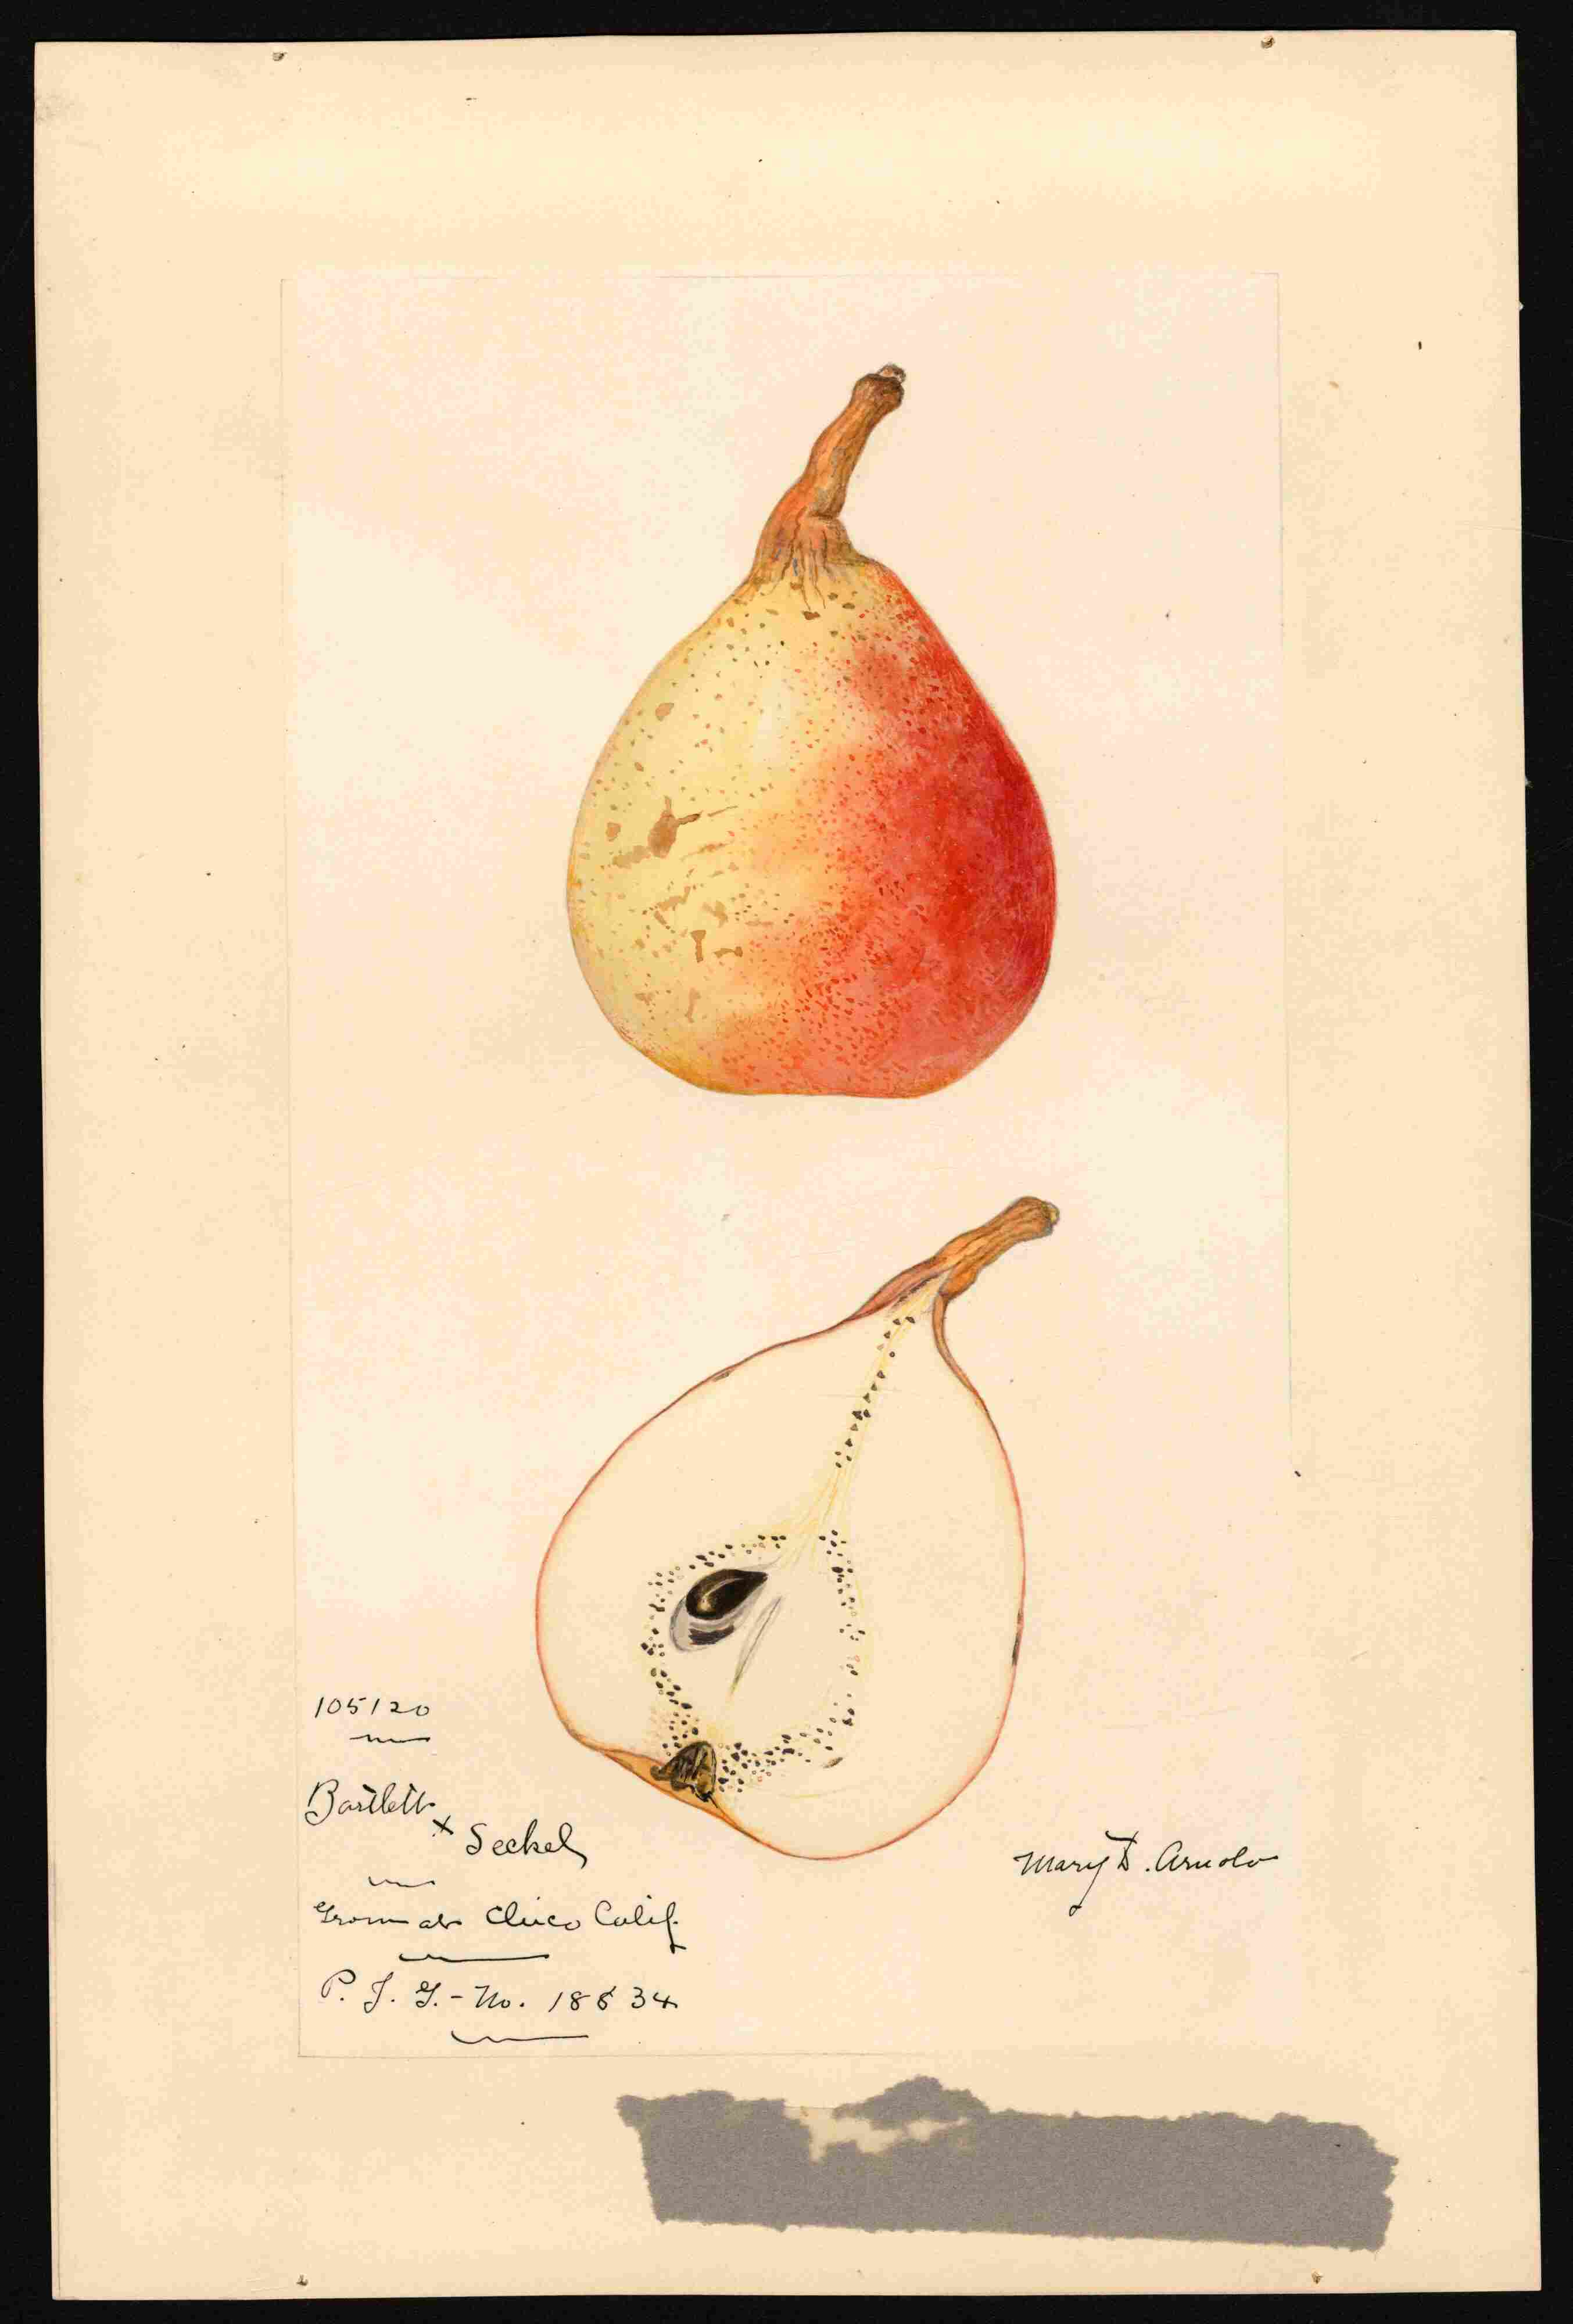 105120
Bartlett
x Seckel
Grown at Chico Calif.
P. I. G. - No. 18834
Mary D. Arnold